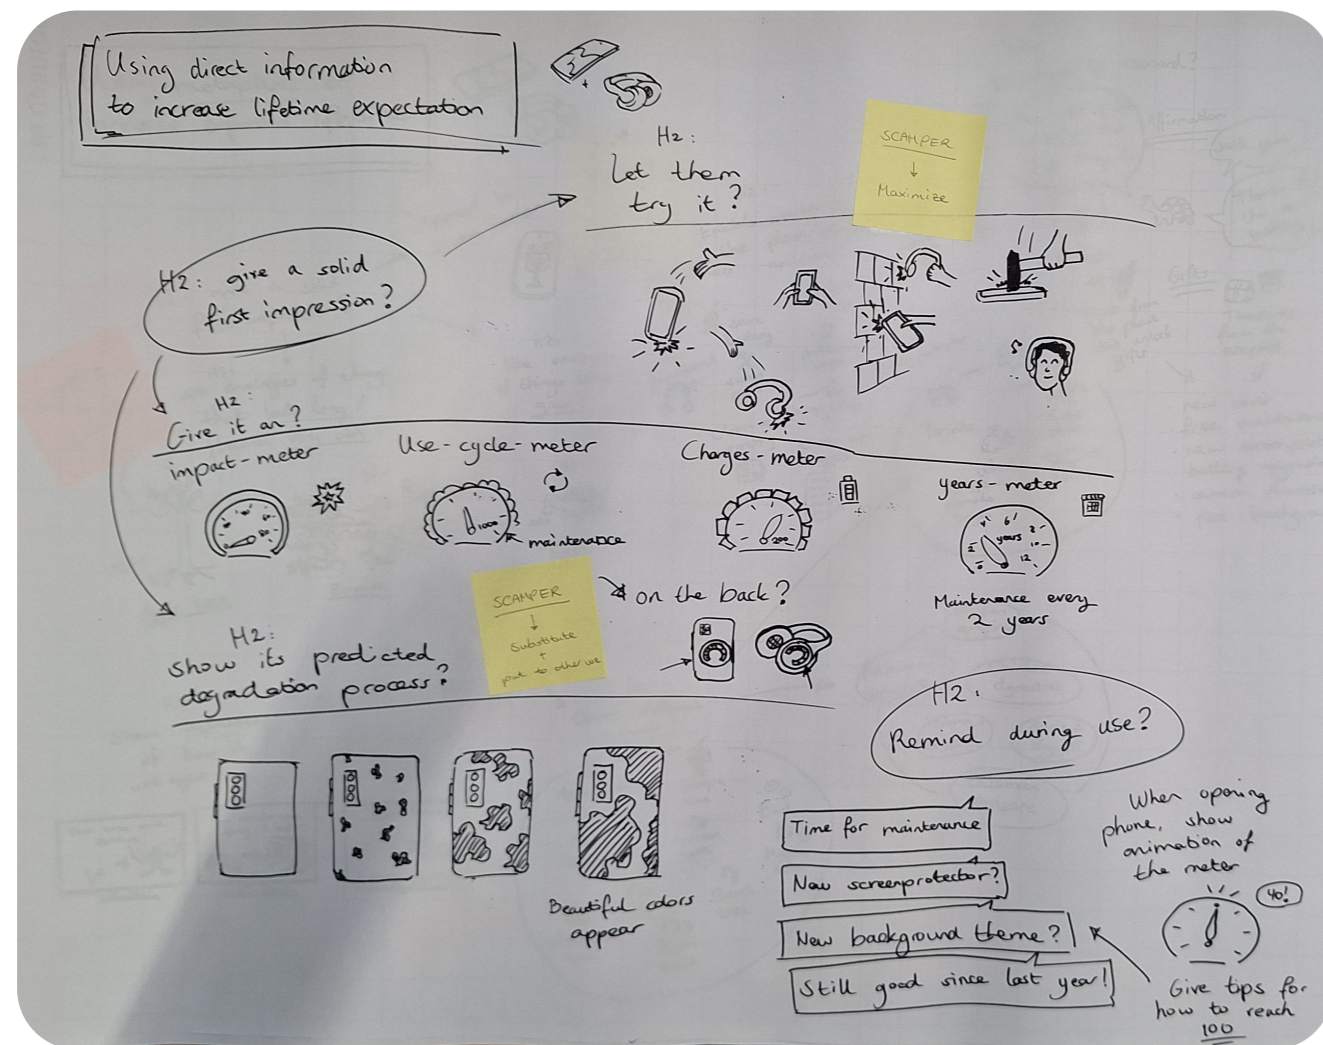 Using direct information
to increase lifetime expectation
H2:
Let them
try it?
SCAMPER
Maximize
H2: give a solid
first impression?
H2:
Give it an?
impact-meter
Use-cycle-meter
1000
maintenance
Charges-meter
200
years-meter
2
4
6
8
10
12
years
Maintenance every
2 years
SCAMPER
Substitute
+
put to other use
on the back?
H2:
show its predicted
degradation process?
Beautiful colors
appear
H2:
Remind during use?
Time for maintenance
New screenprotector?
New background theme?
Still good since last year!
When opening
phone, show
animation of
the meter
40!
Give tips for
how to reach
100